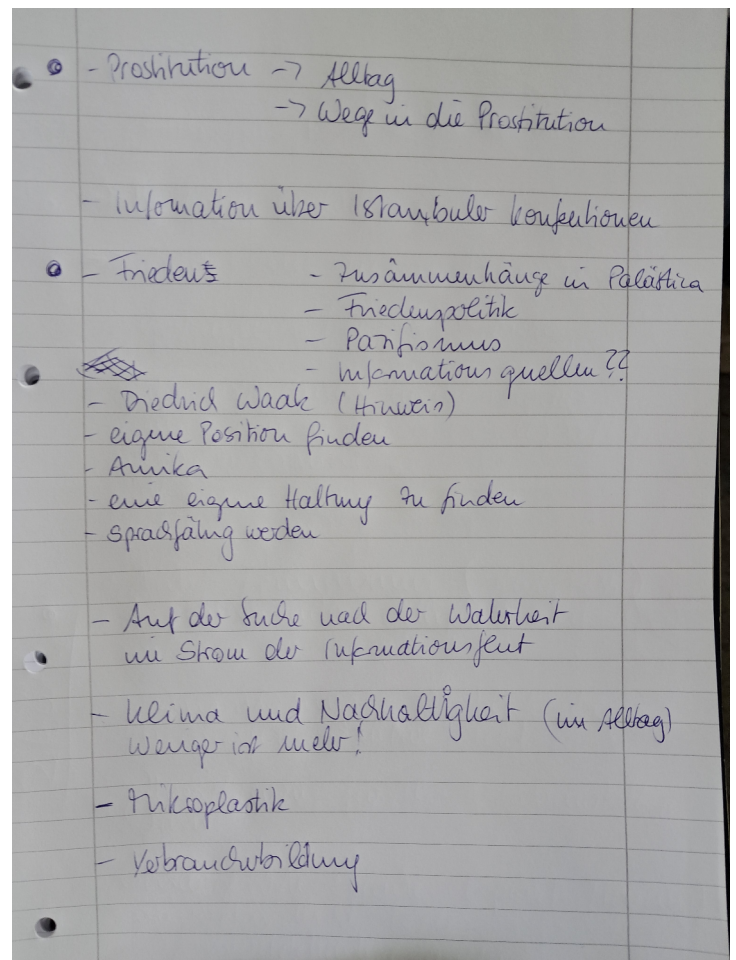 - Prostitution -> Alltag
-> Wege in die Prostitution
- Information über Istanbuler Konfentionen
- Friedens - Zusammenhänge in Palästina
- Friedenspolitik
- Pazifismus
- Informationsquellen??
- Diedrich Waak (Hinweis)
- eigene Position finden
- Annika
- eine eigene Haltung zu finden
- sprachfähig werden
- Auf der Suche nach der Wahrheit
im Strom der Informationsflut
- Klima und Nachhaltigkeit (im Alltag)
Weniger ist mehr!
- Mikroplastik
- Verbraucherbildung